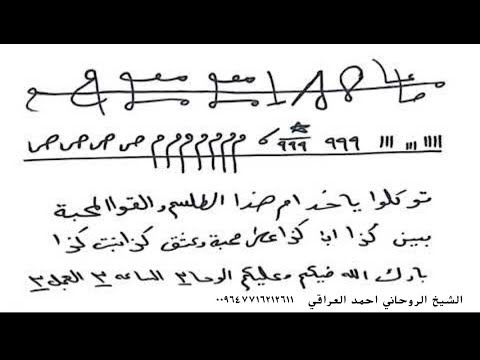 ١١١١ ١١١ ١١١ ٩٩٩ ٩٩٩ م م م م م م ص ص ص ص
توكلوا ياخدام هذا الطلسم والقوا المحبة
بين كذا ابن كذا على محبة وعشق كذا بنت كذا
بارك الله فيكم وعليكم الوحا ٣ الساعه ٣ العجل ٣
الشيخ الروحاني احمد العراقي ٠٠٩٦٤٧٧١٦٢١٢٦١١